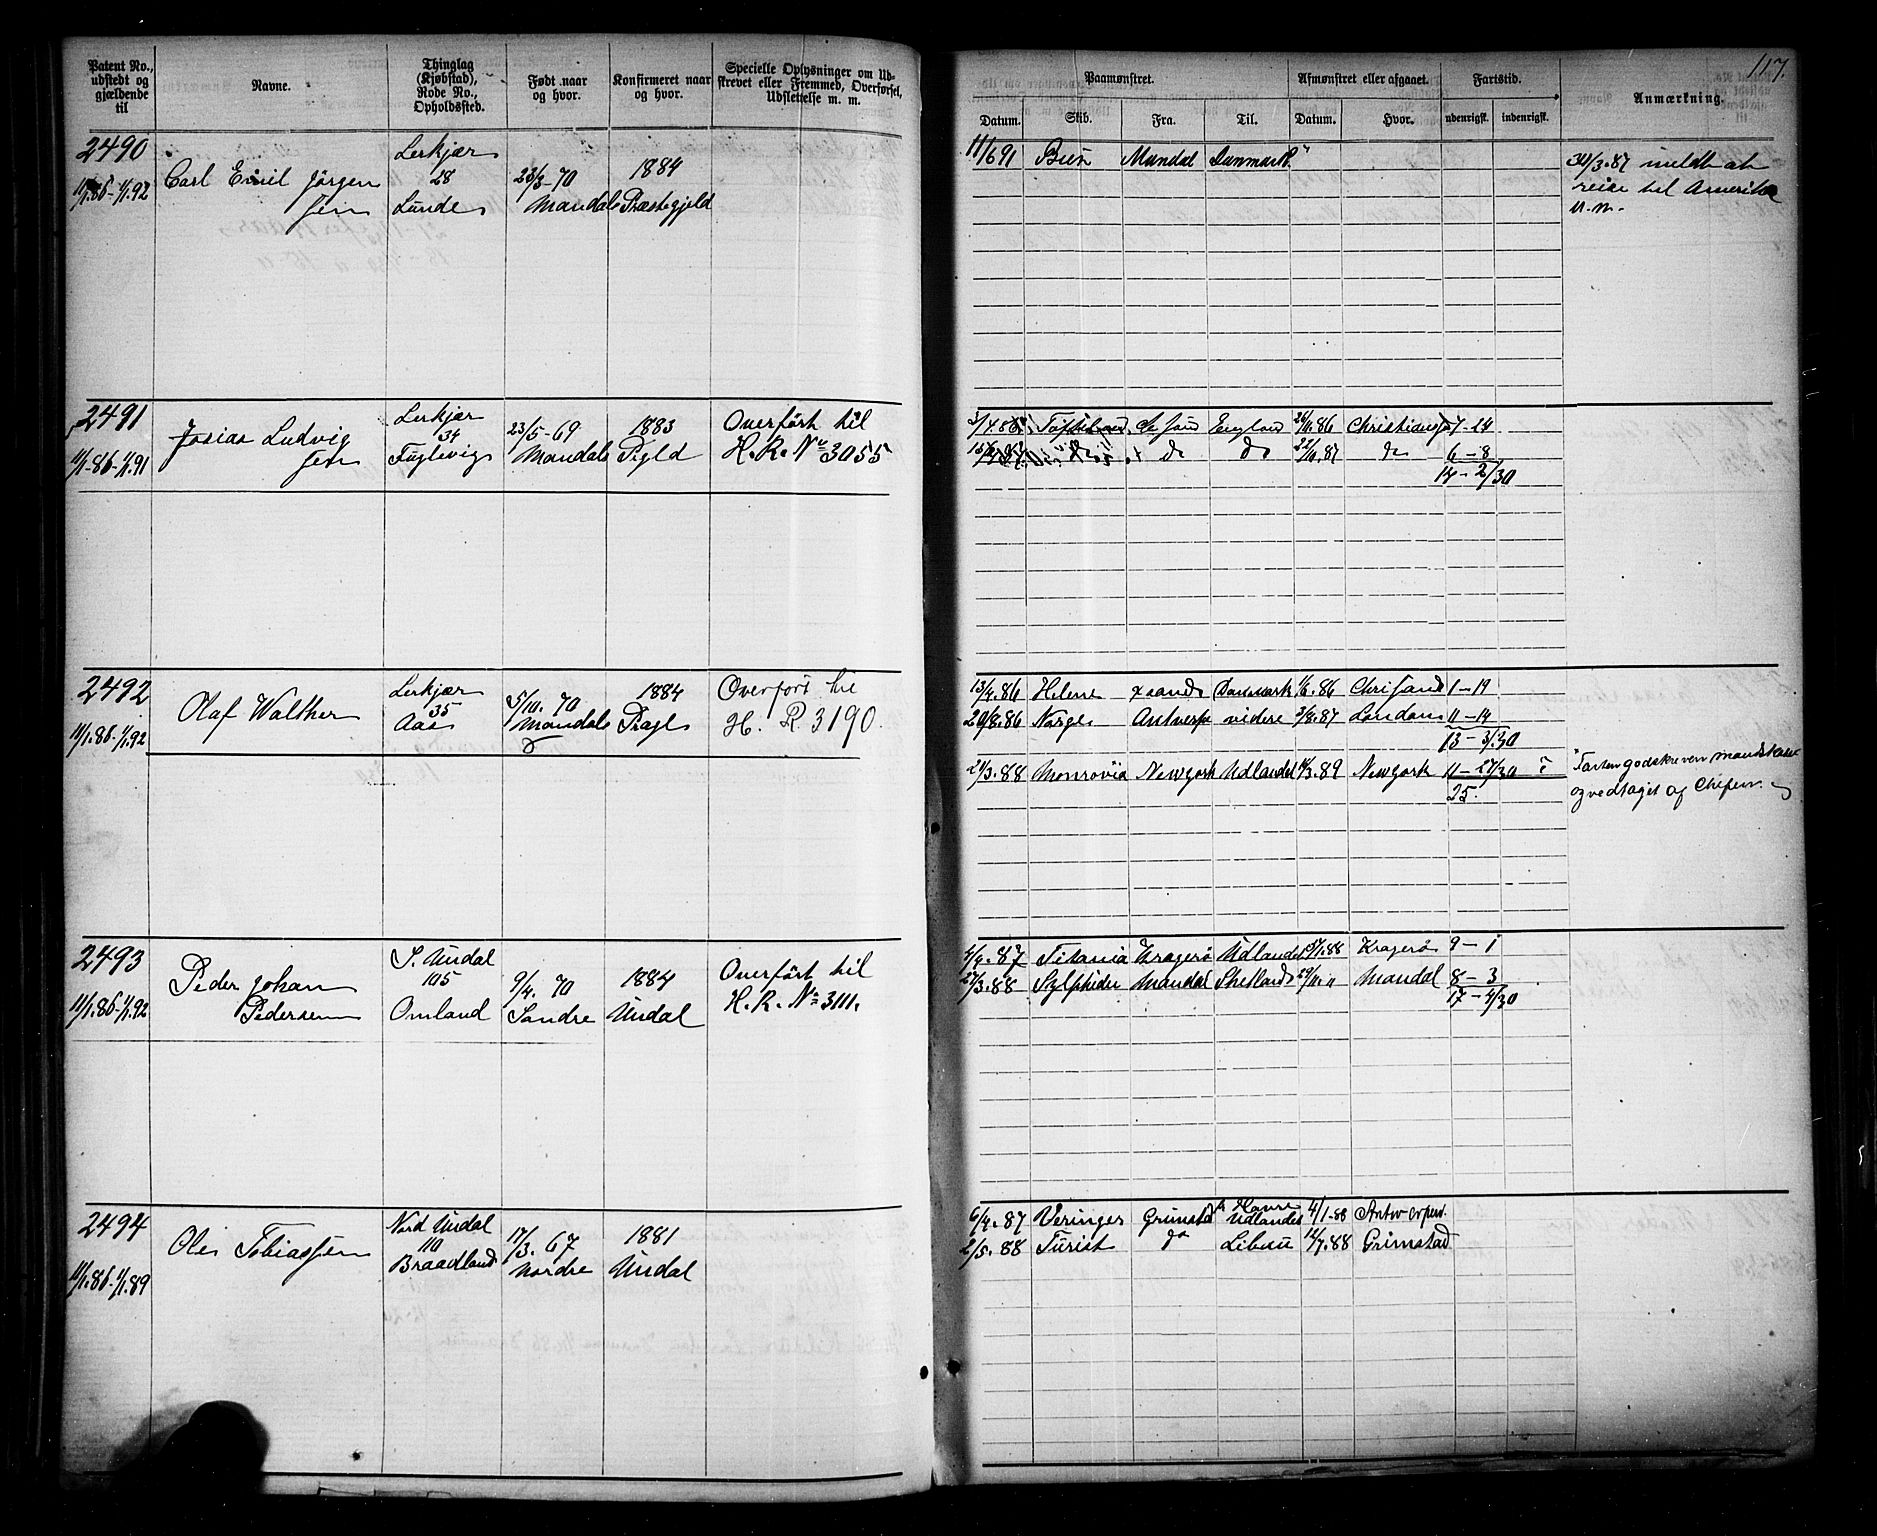 117.
Patent No., udstedt og gjældende til
Navne.
Thinglag (Kjøbstad), Rode No., Opholdssted.
Født naar og hvor.
Konfirmeret naar og hvor.
Specielle Oplysninger om Udskrevet eller Fremmed, Overførsel, Udslettelse m. m.
Paamønstret.
Afmønstret eller afgaaet.
Fartstid.
Anmærkning.
Datum. Skib. Fra. Til. Datum. Hvor. udenrigsk. indenrigsk.
2490
11/1.86-1/1.92
Carl Emil Jørgen
sen
Lerkjær
28
Lunde
23/3-70
Mandals
1884
Præstegjeld
11/6 91 Mandal Danmark
3.87 meldt at
reise til Amerika
2491
11/1-86-1/1.91
Josias Ludvig
sen
Lerkjær
34
Fuglevig
23/5-69
Mandals
1883
Pgld
Overført til
H. R. No 3055
England 26/11.86 7-24
do do 22/11.87 do 6-8
14-2/30
2492
11/1.86-1/1.92
Olaf Walther
Lerkjær
35
Aas
5/10. 70
Mandals
1884
Pragl
Overført til
H. R 3190.
13/4.86 Helene xsand Danmark 1/6.86 Chrisand 1-19
20/8.86 Norge Antverp videre 3/8.87 London 11-14
13-3/30
21/3.88 Monrovia Newyork Udlandet 89 Newyork 11-27/30
25.
Farten godskreven mandskabet
og vedtaget af Chefen.
2493
11/1.86-1/1.92
Peder Johan
Pedersen
S. Undal
105
Omland
9/4. 70
Søndre
1884
Undal
Overført til
H. R. No 3111.
4/4.87 Titania Kragerø Udlandet 88 Kragerø 9-1
27/3.88 Sylphide Mandal Shetland 29/11 " Mandal 8-3
17-4/30
2494
11/1.86-1/1.89
Ole Tobiassen
Nord Undal
110
Braadland
17/3. 67
Nordre
1881
Undal
6/4.87 Grimstad Havre
Udlandet 4/1-88 Antwerpen.
2/5.88 Turist do Libau 12/7.88 Grimstad